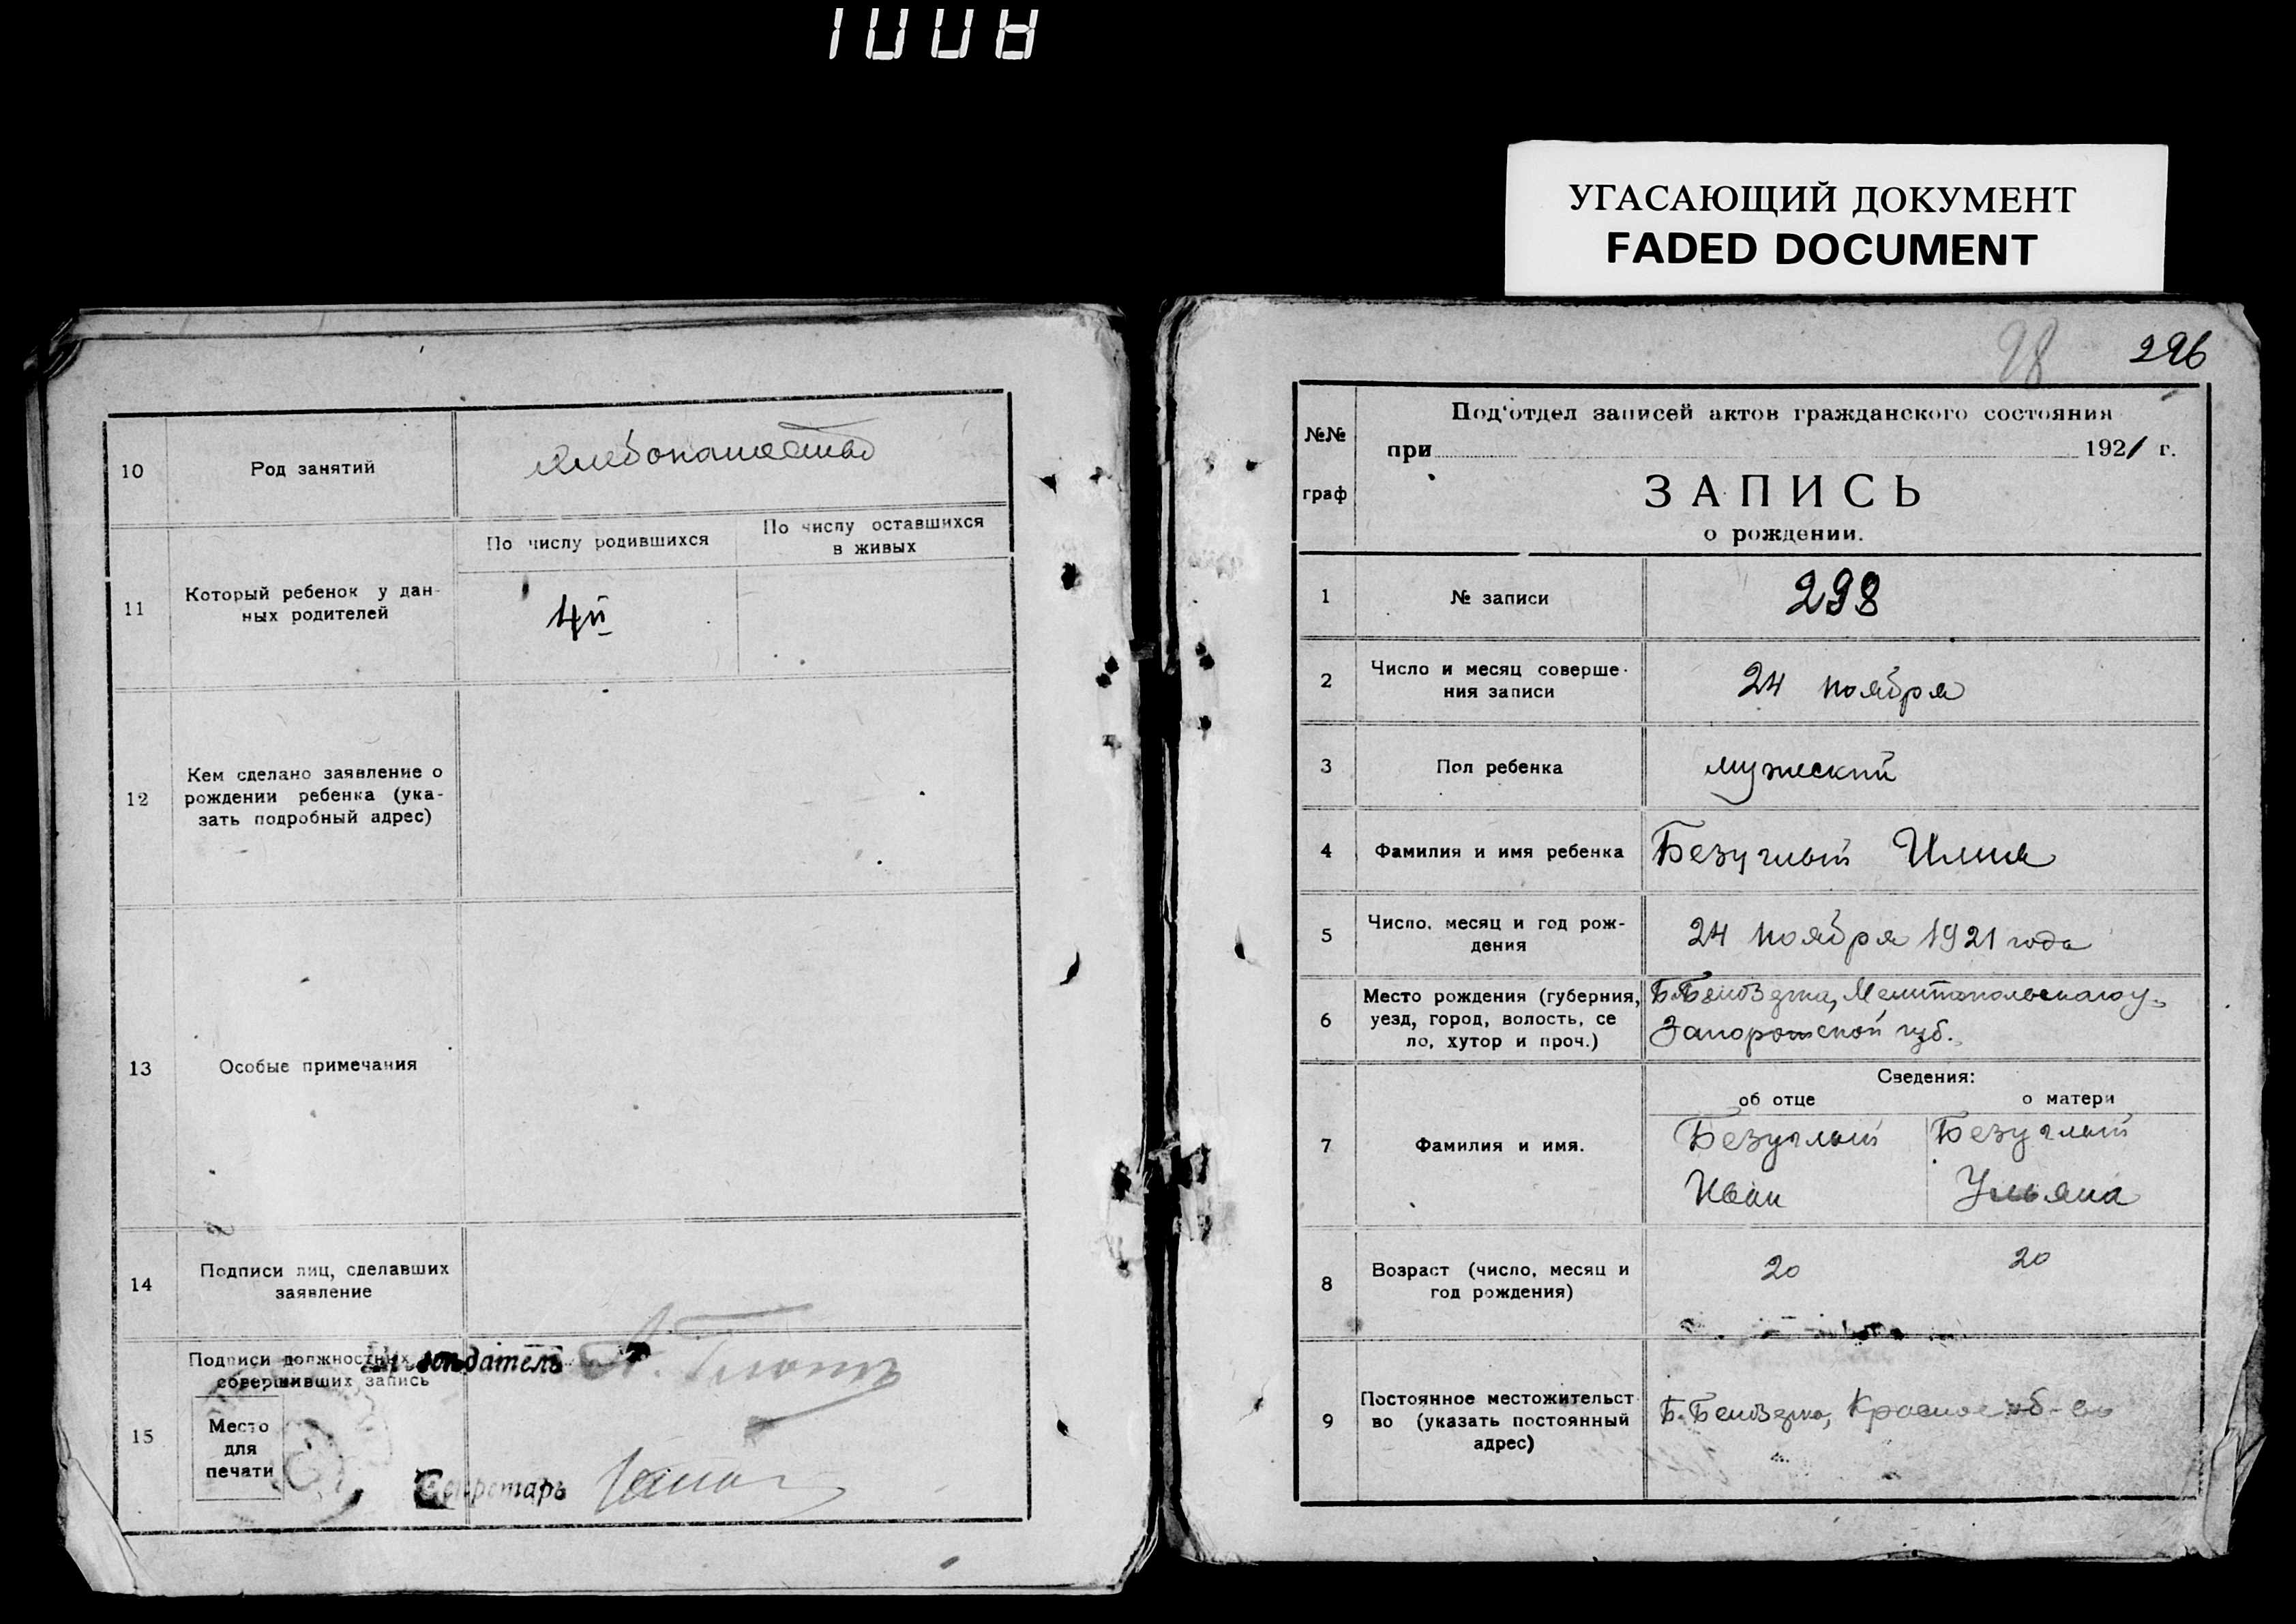 1008
УГАСАЮЩИЙ ДОКУМЕНТ
FADED DOCUMENT
10 Род занятий хлебопашество
11 Который ребенок у дан-
ных родителей
По числу родившихся
По числу оставшихся
в живых
4й
12 Кем сделано заявление о
рождении ребенка (ука-
зать подробный адрес)
13 Особые примечания
14 Подписи лиц, сделавших
заявление
15 Подписи должностных
совершивших запись
Место
для
печати
Секретарь
98 296
№№
граф
Под'отдел записей актов гражданского состояния
при 1921 г.
ЗАПИСЬ
о рождении.
1 № записи 298
2 Число и месяц соверше-
ния записи
24 ноября
3 Пол ребенка мужеский
4 Фамилия и имя ребенка Безуглый Илия
5 Число, месяц и год рож-
дения
24 ноября 1921 года
6 Место рождения (губерния,
уезд, город, волость, се
ло, хутор и проч.)
Мелитопольскаго у.
Запорожской губ.
Сведения:
об отце о матери
7 Фамилия и имя.
Безуглый Безуглый
Иван Ульяна
8 Возраст (число, месяц и
год рождения)
20 20
9 Постоянное местожительст-
во (указать постоянный
адрес)